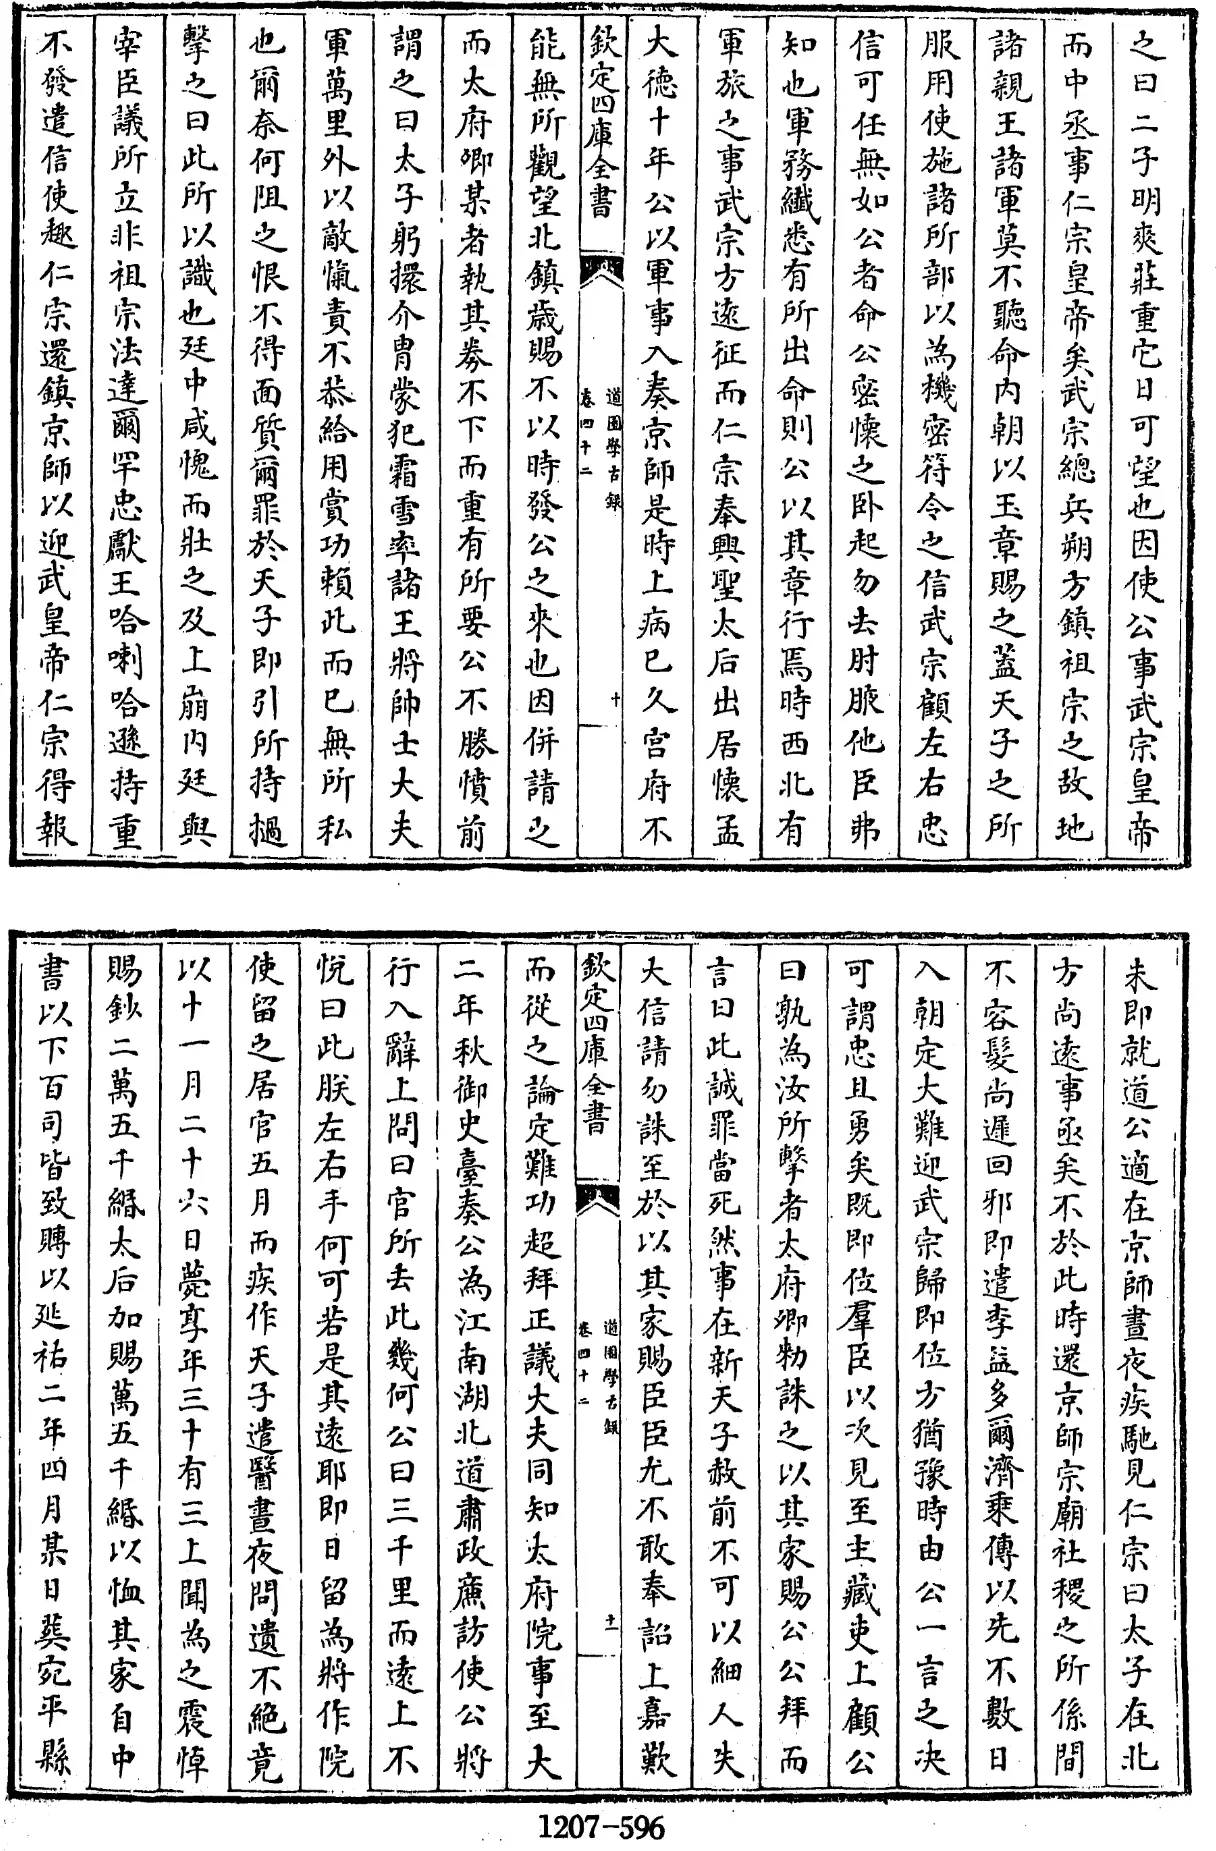 之曰二子明爽莊重它日可望也因使公事武宗皇帝
而中丞事仁宗皇帝矣武宗總兵朔方鎮祖宗之故地
諸親王諸軍莫不聽命內朝以玉章賜之蓋天子之所
服用使施諸所部以為機密符令之信武宗顧左右忠
信可任無如公者命公密懷之卧起勿去肘腋他臣弗
知也軍務纖悉有所出命則公以其章行焉時西北有
軍旅之事武宗方遠征而仁宗奉興聖太后出居懷孟
大德十年公以軍事入奏京師是時上病已久宫府不
欽定四庫全書
道園學古錄
卷四十二
十
能無所觀望北鎮歲賜不以時發公之來也因併請之
而太府卿某者執其券不下而重有所要公不勝憤前
謂之曰太子躬擐介胄蒙犯霜雪率諸王將帥士大夫
軍萬里外以敵愾責不恭給用賞功賴此而已無所私
也爾奈何阻之恨不得面質爾罪於天子即引所持撾
擊之曰此所以識也廷中咸愧而壯之及上崩内廷與
宰臣議所立非祖宗法達爾罕忠獻王哈喇哈遜持重
不發遣信使趣仁宗還鎮京師以迎武皇帝仁宗得報
未即就道公適在京師晝夜疾馳見仁宗曰太子在北
方尚遠事亟矣不於此時還京師宗廟社稷之所係間
不容髮尚遲回邪即遣李益多爾濟乘傳以先不數日
入朝定大難迎武宗歸即位方猶豫時由公一言之决
可謂忠且勇矣既即位羣臣以次見至主藏吏上顧公
曰孰為汝所擊者太府卿勑誅之以其家賜公公拜而
言曰此誠罪當死然事在新天子赦前不可以細人失
大信請勿誅至於以其家賜臣臣尤不敢奉詔上嘉歎
欽定四庫全書
道園學古錄
卷四十二
十一
而從之論定難功超拜正議大夫同知太府院事至大
二年秋御史臺奏公為江南湖北道肅政廉訪使公將
行入辭上問曰官所去此幾何公曰三千里而遠上不
悅曰此朕左右手何可若是其遠耶即日留為將作院
使留之居官五月而疾作天子遣醫晝夜問遺不絶竟
以十一月二十六日薨享年三十有三上聞為之震悼
賜鈔二萬五千緡太后加賜萬五千緡以恤其家自中
書以下百司皆致賻以延祐二年四月某日葬宛平縣
1207-596